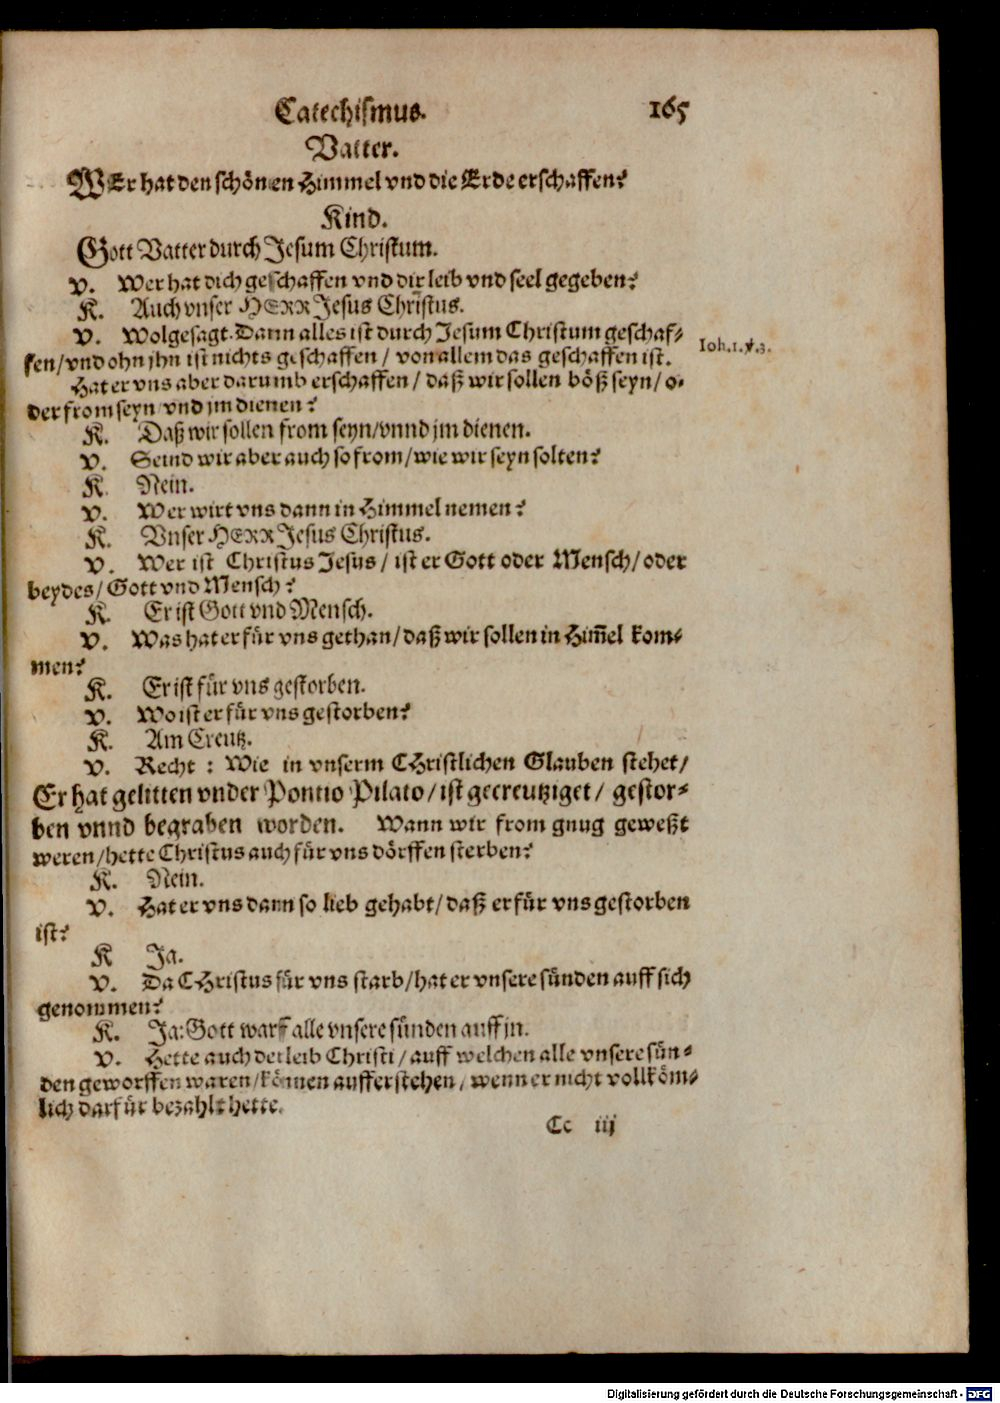 Catechismus. 165
Vatter.
WEr hat den schönen Himmel vnd die Erde erschaffen?
Kind.
Gott Vatter durch Jesum Christum.
V. Wer hat dich geschaffen vnd dir leib vnd seel gegeben?
K. Auch vnser HERR Jesus Christus.
V. Wolgesagt. Dann alles ist durch Jesum Christum geschaf-
fen/vnd ohn jhn ist nichts geschaffen/ von allem das geschaffen ist.
Ioh. 1. v. 3.
Hat er vns aber darumb erschaffen/ daß wir sollen böß seyn/ o-
der from seyn vnd jm dienen?
K. Daß wir sollen from seyn/vnnd jm dienen.
V. Seind wir aber auch so from/wie wir seyn solten?
K. Nein.
V. Wer wirt vns dann in Himmel nemen?
K. Vnser HERR Jesus Christus.
V. Wer ist Christus Jesus/ ist er Gott oder Mensch/ oder
beydes/ Gott vnd Mensch?
K. Er ist Gott vnd Mensch.
V. Was hat er für vns gethan/daß wir sollen in Him̄el kom-
men?
K. Er ist für vns gestorben.
V. Wo ist er für vns gestorben?
K. Am Creutz.
V. Recht: Wie in vnserm CHristlichen Glauben stehet/
Er hat gelitten vnder Pontio Pilato/ist gecreutziget/ gestor-
ben vnnd begraben worden. Wann wir from gnug geweßt
weren/hette Christus auch für vns dörffen sterben?
K. Nein.
V. Hat er vns dann so lieb gehabt/daß er für vns gestorben
ist?
K Ja.
V. Da CHristus für vns starb/hat er vnsere sünden auff sich
genommen?
K. Ja: Gott warff alle vnsere sünden auff jn.
V. Hette auch der leib Christi/ auff welchen alle vnsere sün-
den geworffen waren/können aufferstehen/ wenn er nicht vollköm-
lich darfür bezahlt hette.
Cc iij
Digitalisierung gefördert durch die Deutsche Forschungsgemeinschaft - DFG